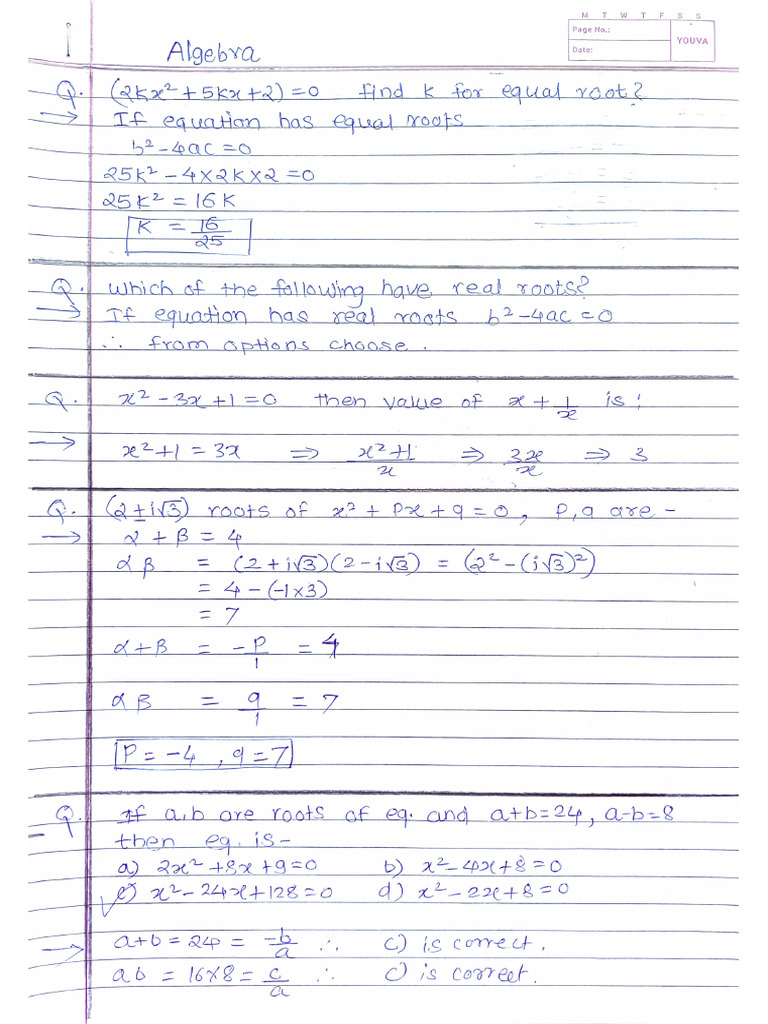 M T W T F S S
Page No.:
Date:
YOUVA
1
Algebra
Q. (2kx² + 5kx + 2) = 0 find k for equal root?
→ If equation has equal roots
b² - 4ac = 0
25k² - 4×2k×2 = 0
25k² = 16k
k = 16/25
Q. which of the following have real roots?
→ If equation has real roots b² - 4ac = 0
∴ from options choose.
Q. x² - 3x + 1 = 0 then value of x + 1/x is:
→ x² + 1 = 3x ⇒ x²+1/x ⇒ 3x/x ⇒ 3
Q. (2 ± i√3) roots of x² + Px + q = 0, P, q are -
→ α + β = 4
αβ = (2 + i√3)(2 - i√3) = (2² - (i√3)²)
= 4 - (-1×3)
= 7
α + β = -P/1 = 4
αβ = q/1 = 7
P = -4, q = 7
Q. If a,b are roots of eq. and a+b=24, a-b=8
then eq. is -
a) 2x² + 8x + 9 = 0 b) x² - 4x + 8 = 0
c) x² - 24x + 128 = 0 d) x² - 2x + 8 = 0
→ a+b = 24 = -b/a ∴ c) is correct.
ab = 16×8 = c/a ∴ c) is correct.